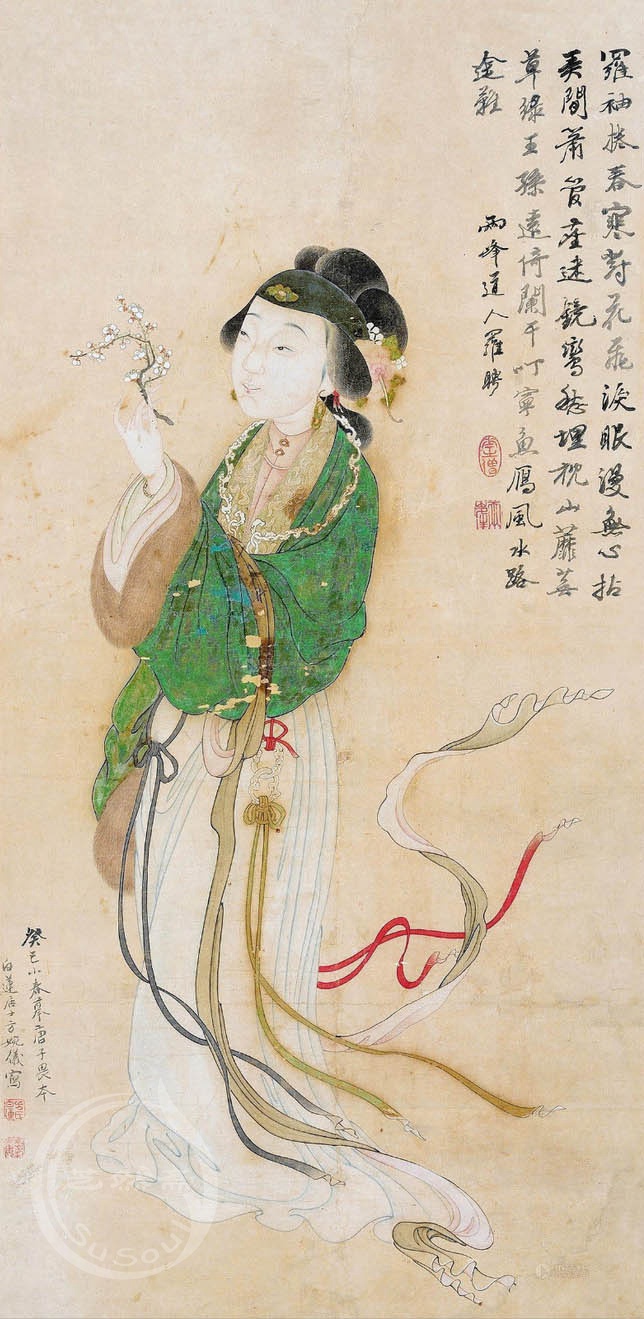 羅袖捲春寒對花飛淚眼漫無心拈
弄閒簫管塵迷鏡鸞愁埋枕山蘼蕪
草綠王孫遠倚闌干叮寧魚鴈風水路
途難
兩峰道人羅聘
癸巳小春摹唐子畏本
白蓮居士方婉儀寫
SuSoul